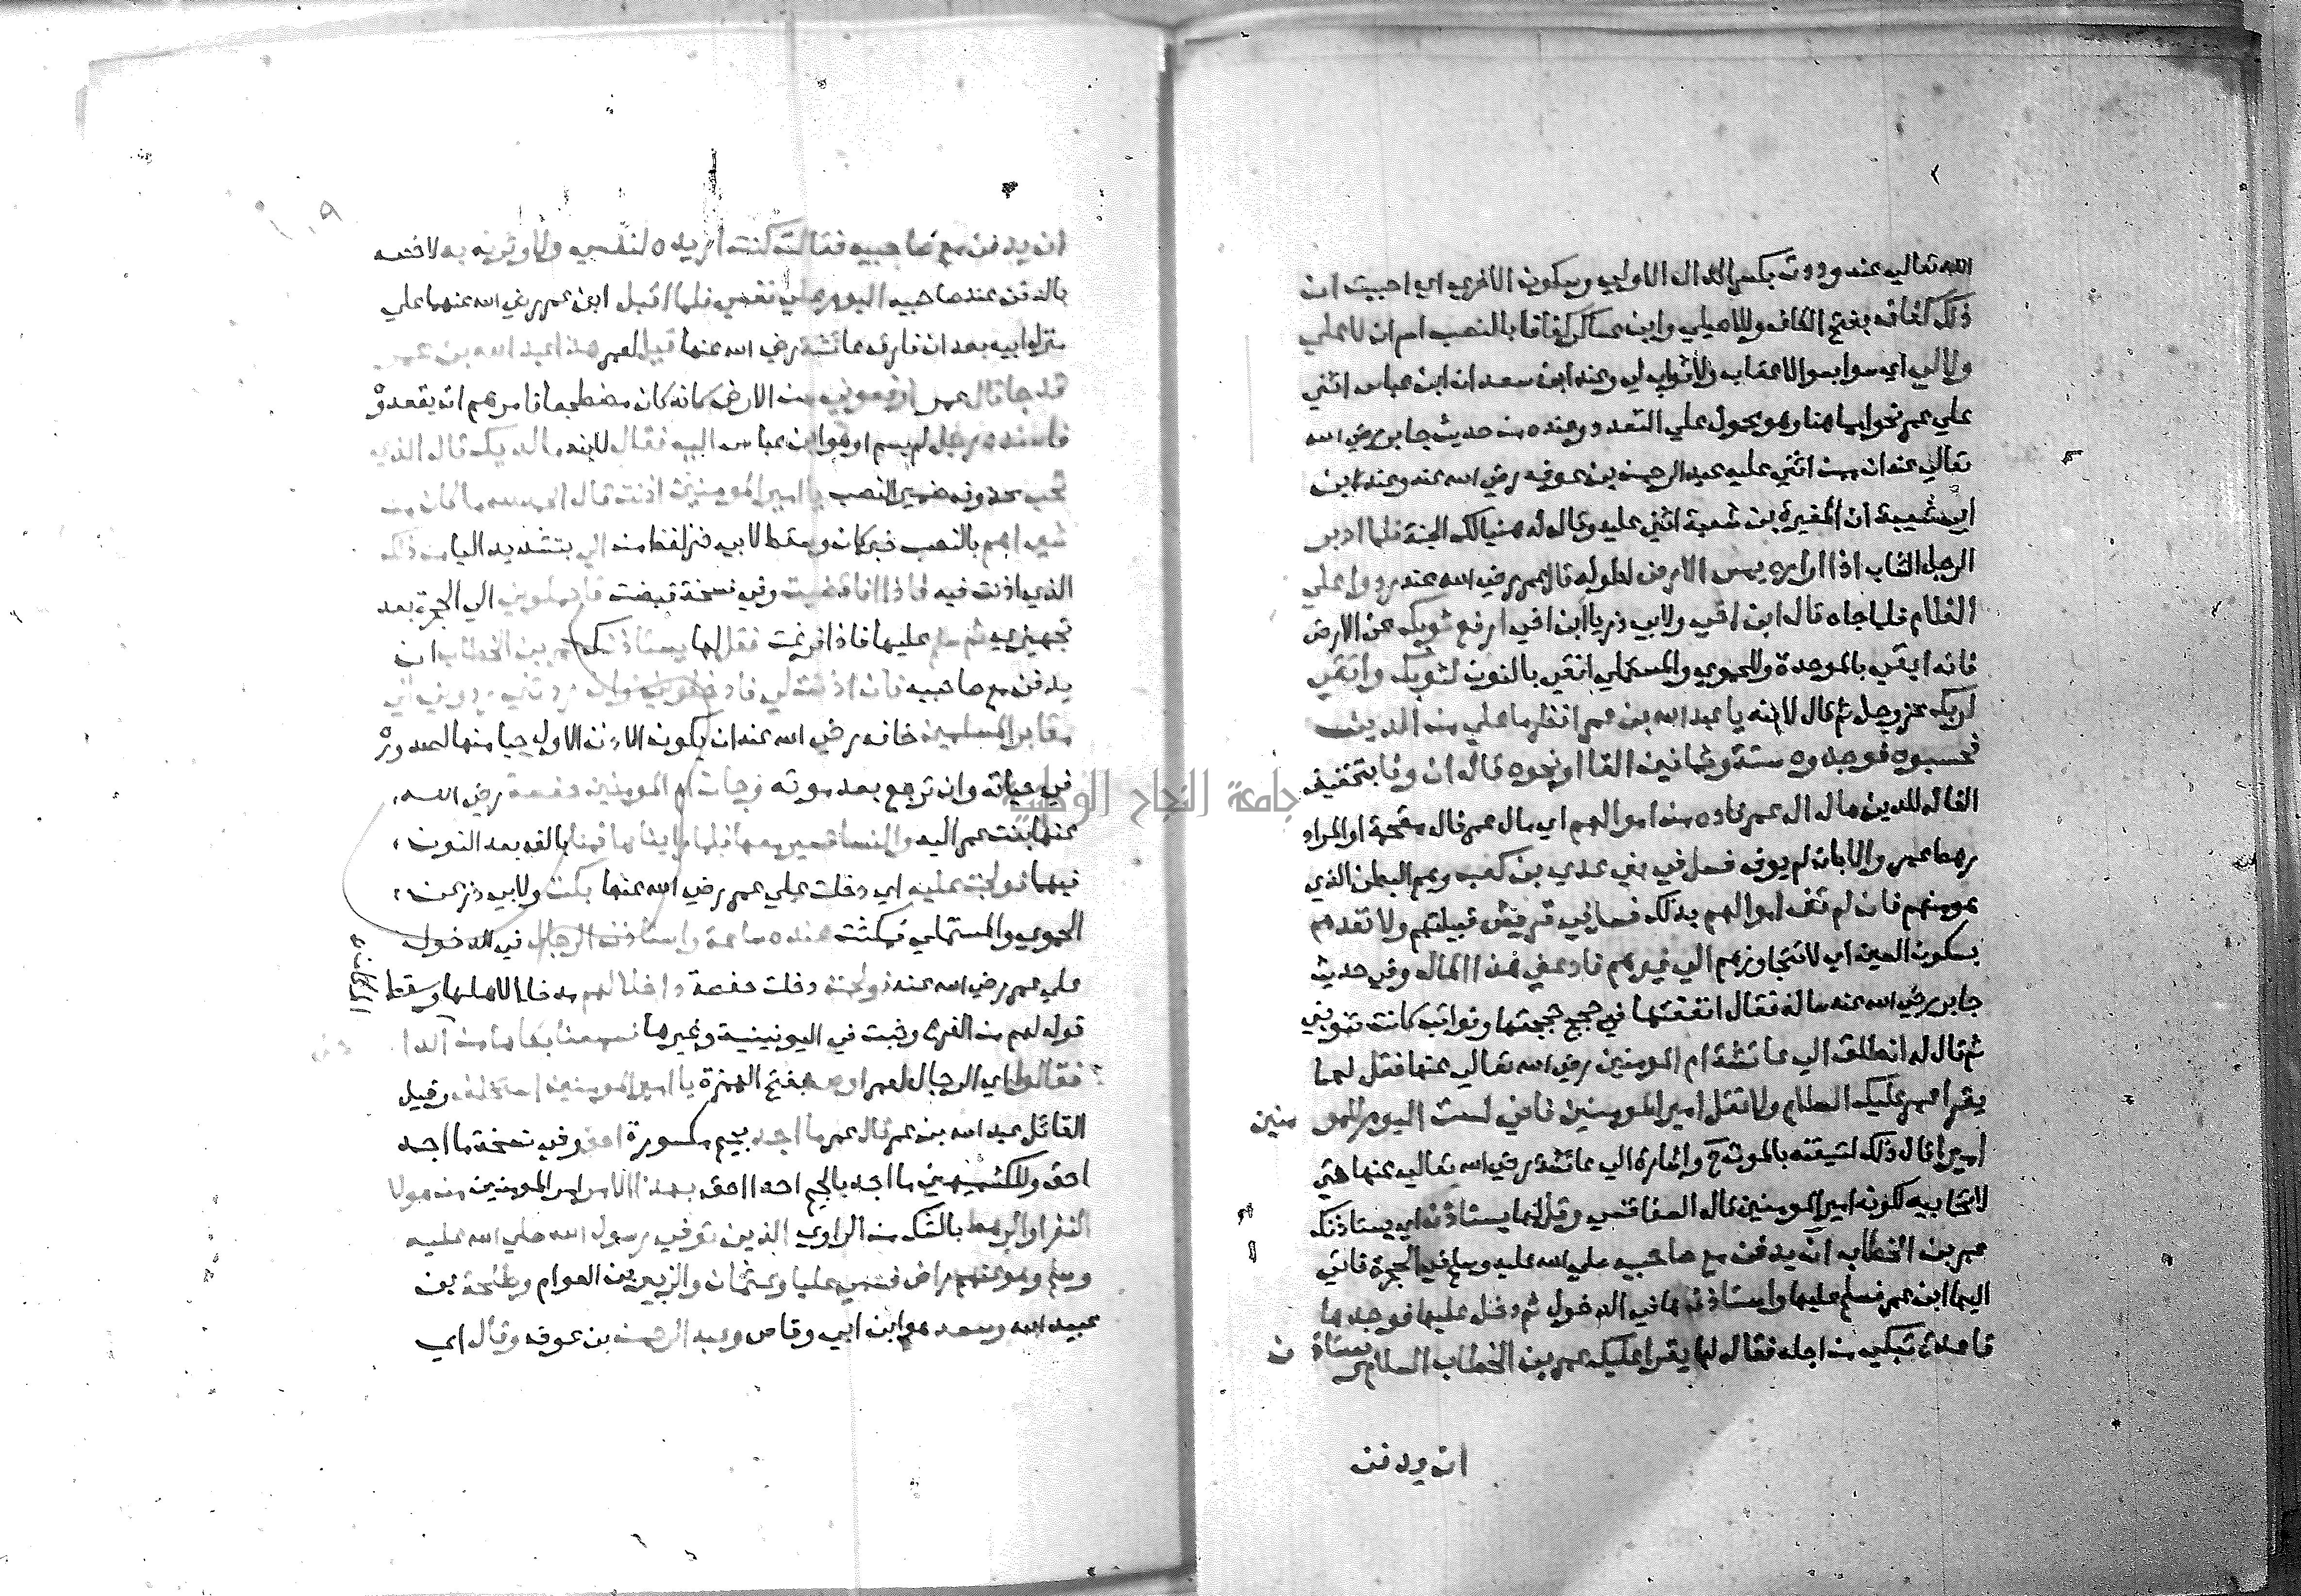 الله تعالي عنه وددت بكسر الدال الاولي وسكون الاخري اي احببت ان
ذلك كفافه بفتح الكاف وللاصيلي وابن عساكر كفافا بالنصب اسم ان لا علي
ولا لي اي سوا بسوا لا عقاب ولا ثواب لي وعند ابن سعد ان ابن عباس اثني
علي عمر نحوا مما هنا وهو محمول علي التعدد وعنده من حديث جابر رضي الله
تعالي عنه ان ممن اثني عليه عبد الرحمن بن عوف رضي الله عنه وعند ابن
ابي شيبة ان المغيرة بن شعبة اثني عليه وقال له هنيا لك الجنة فلما ادبر
الرجل الشاب اذا ازاره يمس الارض لطوله قال عمر رضي الله عنه ردوا علي
الغلام فلما جاه قال ابن اخي ولابي ذر يا ابن اخي ارفع ثوبك عن الارض
فانه ابقي بالموحدة وللحموي والمستملي انقي بالنون لثوبك واتقي
لربك عز وجل ثم قال لابنه يا عبد الله بن عمر انظر ما علي من الدين
فحسبوه فوجدوه ستة وثمانين الفا او نحوه قال ان وفا بتخفيف
الفا له للدين مال ال عمر فاده من اموالهم اي مال عمر فال مقحمة او المراد
رهط عمر والا بان لم يوف فسل في بني عدي بن كعب وهم البطن الذي
هو منهم فان لم تف اموالهم بذلك فسل في قريش قبيلتهم ولا تعدهم
بسكون العين اي لا تتجاوزهم الي غيرهم فادعني هذا المال وفي حديث
جابر رضي الله عنه ماله فقال انفقتها في حجج حججتها ونوايب كانت تنوبني
ثم قال له انطلق الي عائشة ام المومنين رضي الله تعالي عنها فقل لها
يقرا عمر عليك السلام ولا تقل امير المومنين فاني لست اليوم للمومنين
اميرا قال ذلك لتيقنه بالموت واشارة الي عائشة رضي الله تعالي عنها حتي
لا تحابيه لكونه امير المومنين قال الصفاقسي وقل لها يستاذن اي يستاذنك
عمر بن الخطاب ان يدفن مع صاحبيه صلي الله عليه وسلم في الحجرة فاتي
اليها ابن عمر فسلم عليها واستاذنها في الدخول ثم دخل عليها فوجدها
قاعدة تبكي من اجله فقال لها يقرا عليك عمر بن الخطاب السلام يستاذن
ان يدفن
ان يدفن مع صاحبيه فقالت كنت اريده لنفسي ولاوثرنه به لاخصه
بالدفن عند صاحبيه اليوم علي نفسي فلما اقبل ابن عمر رضي الله عنهما علي
منزل ابيه بعد ان فارق عائشة رضي الله عنها قيل لعمر هذا عبد الله بن عمر
قد جا قال عمر ارفعوني من الارض كانه كان مضطجعا فامرهم ان يقعدوه
فاسنده رجل لم يسم او هو ابن عباس اليه فقال لابنه ما لديك قال الذي
تحب بحذف ضمير النصب يا امير المومنين اذنت قال الحمد لله ما كان من
شي اهم بالنصب خبر كان وسقط لابي ذر لفظ من الي بتشديد اليا من ذلك
الذي اذنت فيه فاذا انا قضيت وفي نسخة قبضت فاحملوني الي الحجرة بعد
تجهيزي ثم سلم عليها فاذا فرغت فقل لها يستاذنك عمر بن الخطاب ان
يدفن مع صاحبيه فان اذنت لي فادخلوني وان ردتني ردوني الي
مقابر المسلمين خاف رضي الله عنه ان يكون الاذن الاول حيا منها لصدوره
في حياته وان ترجع بعد موته وجات ام المومنين حفصة رضي الله
عنها بنت عمر اليه والنسا تسير معها فلما رايناها قمنا بالف بعد النون
فيهما فولجت عليه اي دخلت علي عمر رضي الله عنه بكت ولابي ذر عن
الحموي والمستملي فمكثت عنده ساعة واستاذن الرجال في الدخول
علي عمر رضي الله عنه فولجت دخلت حفصة داخلا لهم مدخلا لاهلها وسقط
قوله لهم من الفرع وثبت في اليونينية وغيرها فسمعنا بكاها من الدا
فقالوا اي الرجال لعمر اوص بفتح الهمزة يا امير المومنين استخلف وقيل
القائل عبد الله بن عمر قال عمر ما اجد بجيم مكسورة احق وفي نسخة ما اجد
احق وللكشميهني ما اجد بالجيم احدا احق بهذا الامر امر المومنين من هولا
النفر او الرهط بالشك من الراوي الذين توفي رسول الله صلي الله عليه
وسلم وهو عنهم راض فسمي عليا وعثمان والزبير بن العوام وطلحة بن
عبيد الله وسعد هو ابن ابي وقاص وعبد الرحمن بن عوف وقال اي
جامعة النجاح الوطنية